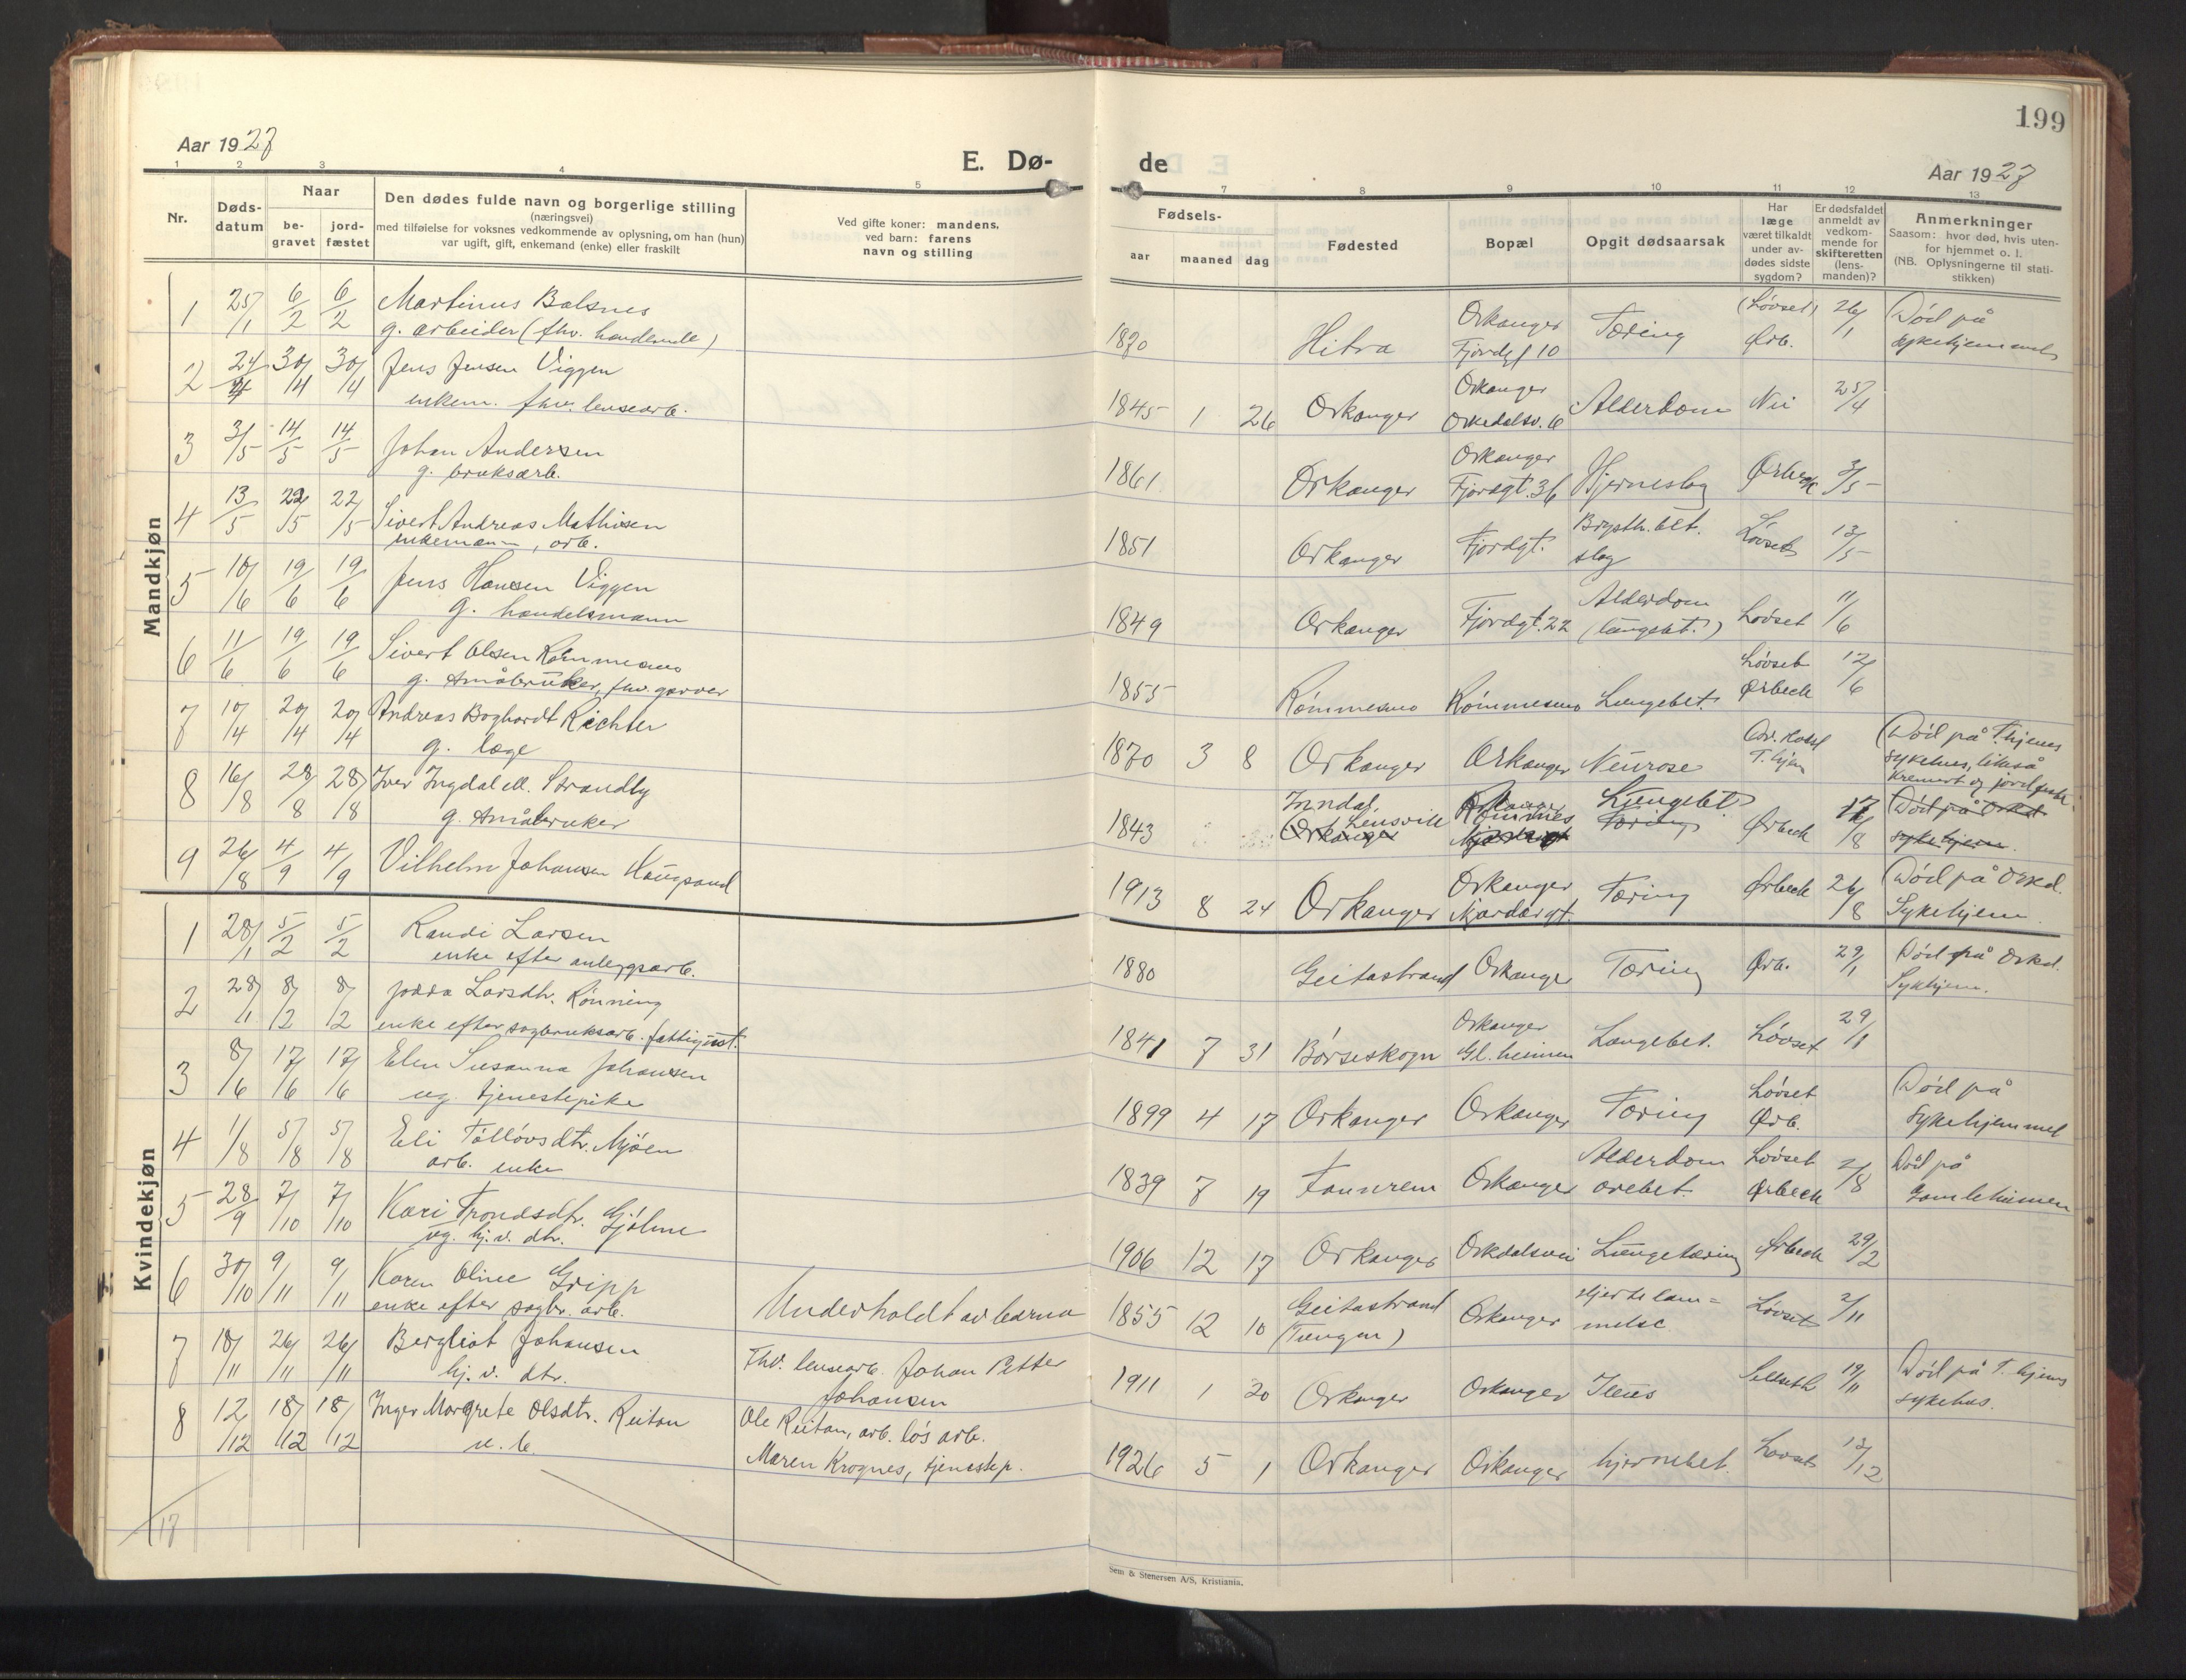 199
Aar 1927
E. Dø-
de
Aar 1927
1 2 3 4 5 7 8 9 10 11 12 13
Nr.
Døds-
datum
Naar
be-
gravet
jord-
fæstet
Den dødes fulde navn og borgerlige stilling
(næringsvei)
med tilføielse for voksnes vedkommende av oplysning, om han (hun)
var ugift, gift, enkemand (enke) eller fraskilt
Ved gifte koner: mandens,
ved barn: farens
navn og stilling
Fødsels-
aar maaned dag
Fødested
Bopæl
Opgit dødsaarsak
Har
læge
været tilkaldt
under av-
dødes sidste
sygdom?
Er dødsfaldet
anmeldt av
vedkom-
mende for
skifteretten
(lens-
manden)?
Anmerkninger
Saasom: hvor død, hvis uten-
for hjemmet o. l.
(NB. Oplysningerne til stati-
stikken)
Mandkjøn
1 25/1 6/2 6/2 Martinus Balsnes
g. arbeider (fhv. handlende)
1870 Hitra Orkanger Fjordgt 10 Tæring (Løvset) Ørb. 26/1 Død på sykehjemmet
2 24/4 30/4 30/4 Jens Jensen Viggen
enkem. fhv. lensearb.
1845 1 26 Orkanger Orkanger Orkedalsv. 6 Alderdom Nei 25/4
3 3/5 14/5 14/5 Johan Andersen
g. bruksarb.
1861 Orkanger Orkanger Fjordgt. 36 Hjerneslag Ørbeck 3/5
4 13/5 22/5 22/5 Sivert Andreas Mathisen
enkemann, arb.
1851 Orkanger Fjordgt. Brysth.bet. slag Løvset 13/5
5 10/6 19/6 19/6 Jens Hansen Viggen
g. handelsmann
1849 Orkanger Fjordgt. 22 Alderdom (lungebet.) Løvset 11/6
6 11/6 19/6 19/6 Sivert Olsen Rømmesmo
g. småbruker, fhv. garver
1855 Rømmesmo Rømmesmo Lungebet. Løvset Ørbeck 12/6
7 10/4 20/4 20/4 Andreas Boghardt Richter
g. læge
1870 3 8 Orkanger Orkanger Neurose T.hjem Død på T.hjems sykehus, likeså kremert og jordfestet.
8 16/8 28/8 28/8 Iver Ingdal ell. Strandby
g. småbruker
1843 Inndal, Lensvik Orkanger Rømmes Lungebet. Tæring Ørbeck 17/8 Død på Orkd. sykehjem.
9 26/8 4/9 4/9 Vilhelm Johansen Haugsand
1913 8 24 Orkanger Orkanger Njardargt. Tæring Ørbeck 26/8 Død på Orkd. Sykehjem.
Kvindekjøn
1 28/1 5/2 5/2 Randi Larsen
enke efter anleggsarb.
1880 Geitastrand Orkanger Tæring Ørb. 29/1 Død på Orkd. Sykehjem.
2 28/1 8/2 8/2 Larsdtr. Rønning
enke efter sagbruksarb. fattigunst.
1841 7 31 Børseskogn Orkanger Gl.heimen Lungebet. Løvset 29/1
3 8/6 17/6 17/6 Elen Susanna Johansen
ug. tjenestepike
1899 4 17 Orkanger Orkanger Tæring Løvset Ørb. Død på sykehjemmet
4 1/8 5/8 5/8 Eli Tølløvsdtr. Mjøen
arb. enke
1839 7 19 Fannrem Orkanger Alderdom ørebet. Løvset Ørbeck 2/8 Død på Gamleheimen
5 28/9 7/10 7/10 Kari Trondsdtr. Gjølme
ug. hj.v. dtr.
1906 12 17 Orkanger Orkdalsvei Lungetæring Ørbeck 29/2
6 30/10 9/11 9/11 Karen Oline Gripp
enke efter sagbr. arb.
Underholdt av barna
1855 12 10 Geitastrand (Tungen) Orkanger Hjertelam= melse Løvset 2/11
7 18/11 26/11 26/11 Bergliot Johansen
hj. v. dtr.
Fhv. lensearb. Johan Petter
Johansen
1911 1 20 Orkanger Orkanger Ileus Selseth 19/11 Død på T.hjems sykehus.
8 12/12 18/12 18/12 Inger Margrete Olsdtr. Reitan
u. e.
Ole Reitan, arb. løs arb.
Maren Krognes, tjenestep.
1926 5 1 Orkanger Orkanger hjernebet. Løvset 13/12
17
Sem & Stenersen A/S, Kristiania.